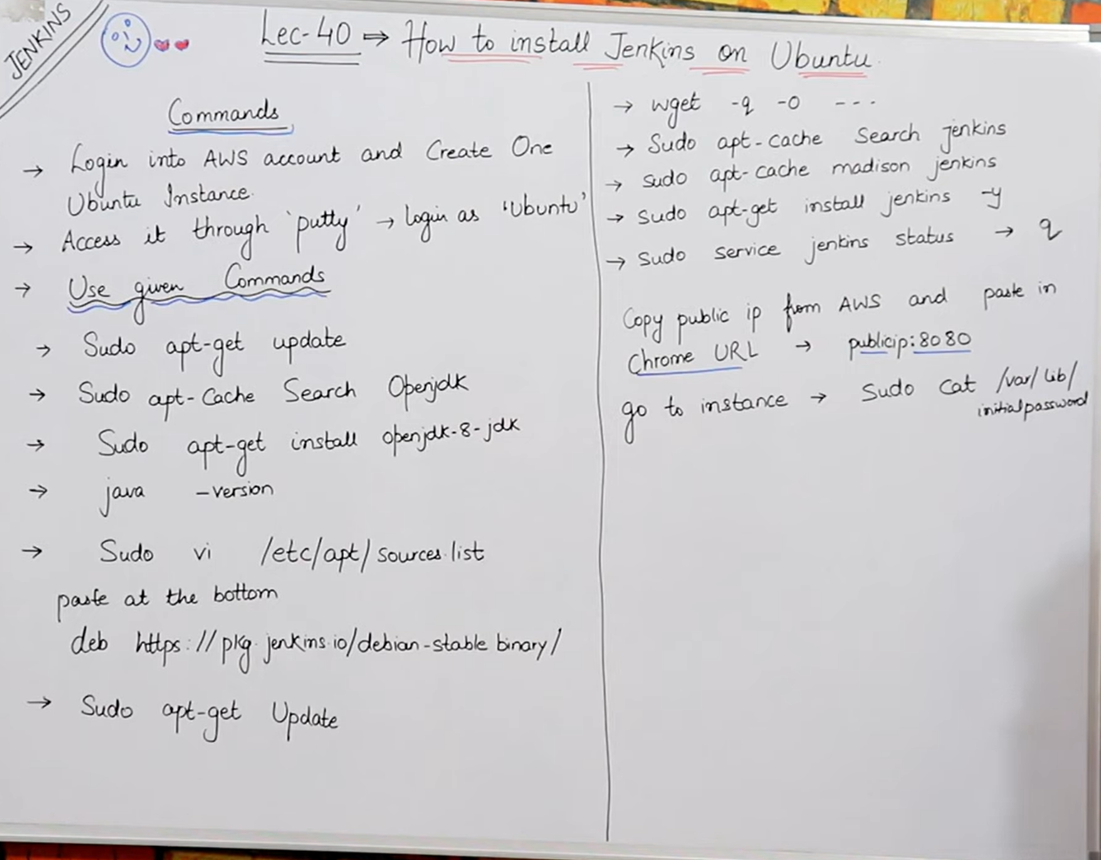 JENKINS
Lec-40 ⇒ How to install Jenkins on Ubuntu
Commands
→ Login into AWS account and Create One
Ubuntu Instance.
→ Access it through 'putty' → login as 'Ubuntu'
→ Use given Commands
→ Sudo apt-get update
→ Sudo apt-Cache Search Openjdk
→ Sudo apt-get install openjdk-8-jdk
→ java -version
→ Sudo vi /etc/apt/sources.list
paste at the bottom
deb https://pkg.jenkins.io/debian-stable binary/
→ Sudo apt-get Update
→ wget -q -o ---
→ Sudo apt-cache Search jenkins
→ sudo apt-cache madison jenkins
→ Sudo apt-get install jenkins -y
→ Sudo service jenkins status → q
Copy public ip from AWS and paste in
Chrome URL → publicip:8080
go to instance → Sudo Cat /var/lib/
initialpassword